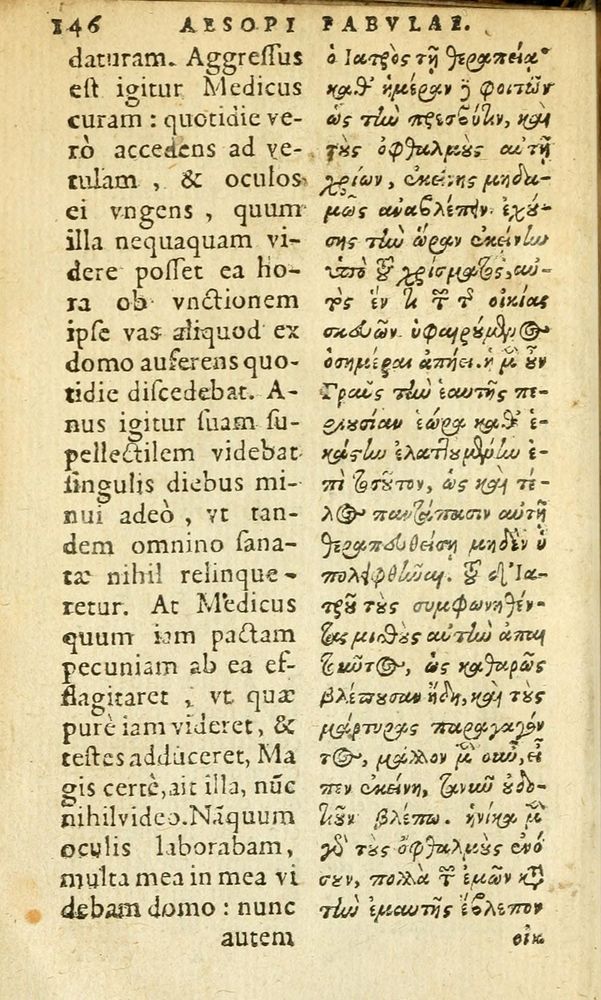 146 AESOPI FABVLAE.
daturam. Aggressus
est igitur Medicus
curam : quotidie ve-
rò accedens ad ve-
tulam , & oculos
ei vngens , quum
illa nequaquam vi-
dere posset ea ho-
ra ob vnctionem
ipse vas aliquod ex
domo auferens quo-
tidie discedebat. A-
nus igitur suam su-
pellectilem videbat
singulis diebus mi-
nui adeò , vt tan-
dem omnino sana-
tæ nihil relinque-
retur. At Medicus
quum iam pactam
pecuniam ab ea ef-
flagitaret , vt quæ
purè iam videret, &
testes adduceret, Ma
gis certè, ait illa, nũc
nihil video. Nãquum
oculis laborabam,
multa mea in mea vi
debam domo : nunc
autem
ὁ Ἰατρὸς τῇ θεραπείᾳ
καθ' ἡμέραν φοιτῶν
ὡς τὴν πρεσβῦτιν, καὶ
τοὺς ὀφθαλμοὺς αὐτῇ
χρίων, ἐκείνης μηδα-
μῶς ἀναβλέπειν ἐχού-
σης τὴν ὥραν ἐκείνην
ὑπὸ τοῦ χρίσματος, αὐ-
τὸς ἕν τι τῶν τῆς οἰκίας
σκευῶν ὑφαιρούμενος
ὁσημέραι ἀπῄει. ἡ μὲν οὖν
Γραῦς τὴν ἑαυτῆς πε-
ριουσίαν ἑώρα καθ' ἑ-
κάστην ἐλαττουμένην ἐ-
πὶ τοσοῦτον, ὡς καὶ τέ-
λος παντάπασιν αὐτῇ
θεραπευθείσῃ μηδὲν ὑ
πολειφθῆναι. τοῦ δ' Ἰα-
τροῦ τοὺς συμφωνηθέν-
τας μισθοὺς αὐτὴν ἀπαι
τοῦντος, ὡς καθαρῶς
βλέπουσαν ἤδη, καὶ τοὺς
μάρτυρας παραγαγόν
τος, μᾶλλον μὲν οὖν, εἶ
πεν ἐκείνη, τανῦν οὐδο-
τιοῦν βλέπω. ἡνίκα μὲν
γὰρ τοὺς ὀφθαλμοὺς ἐνό
σουν, πολλὰ τῶν ἐμῶν κατὰ
τὴν ἐμαυτῆς ἔβλεπον
οἰκ